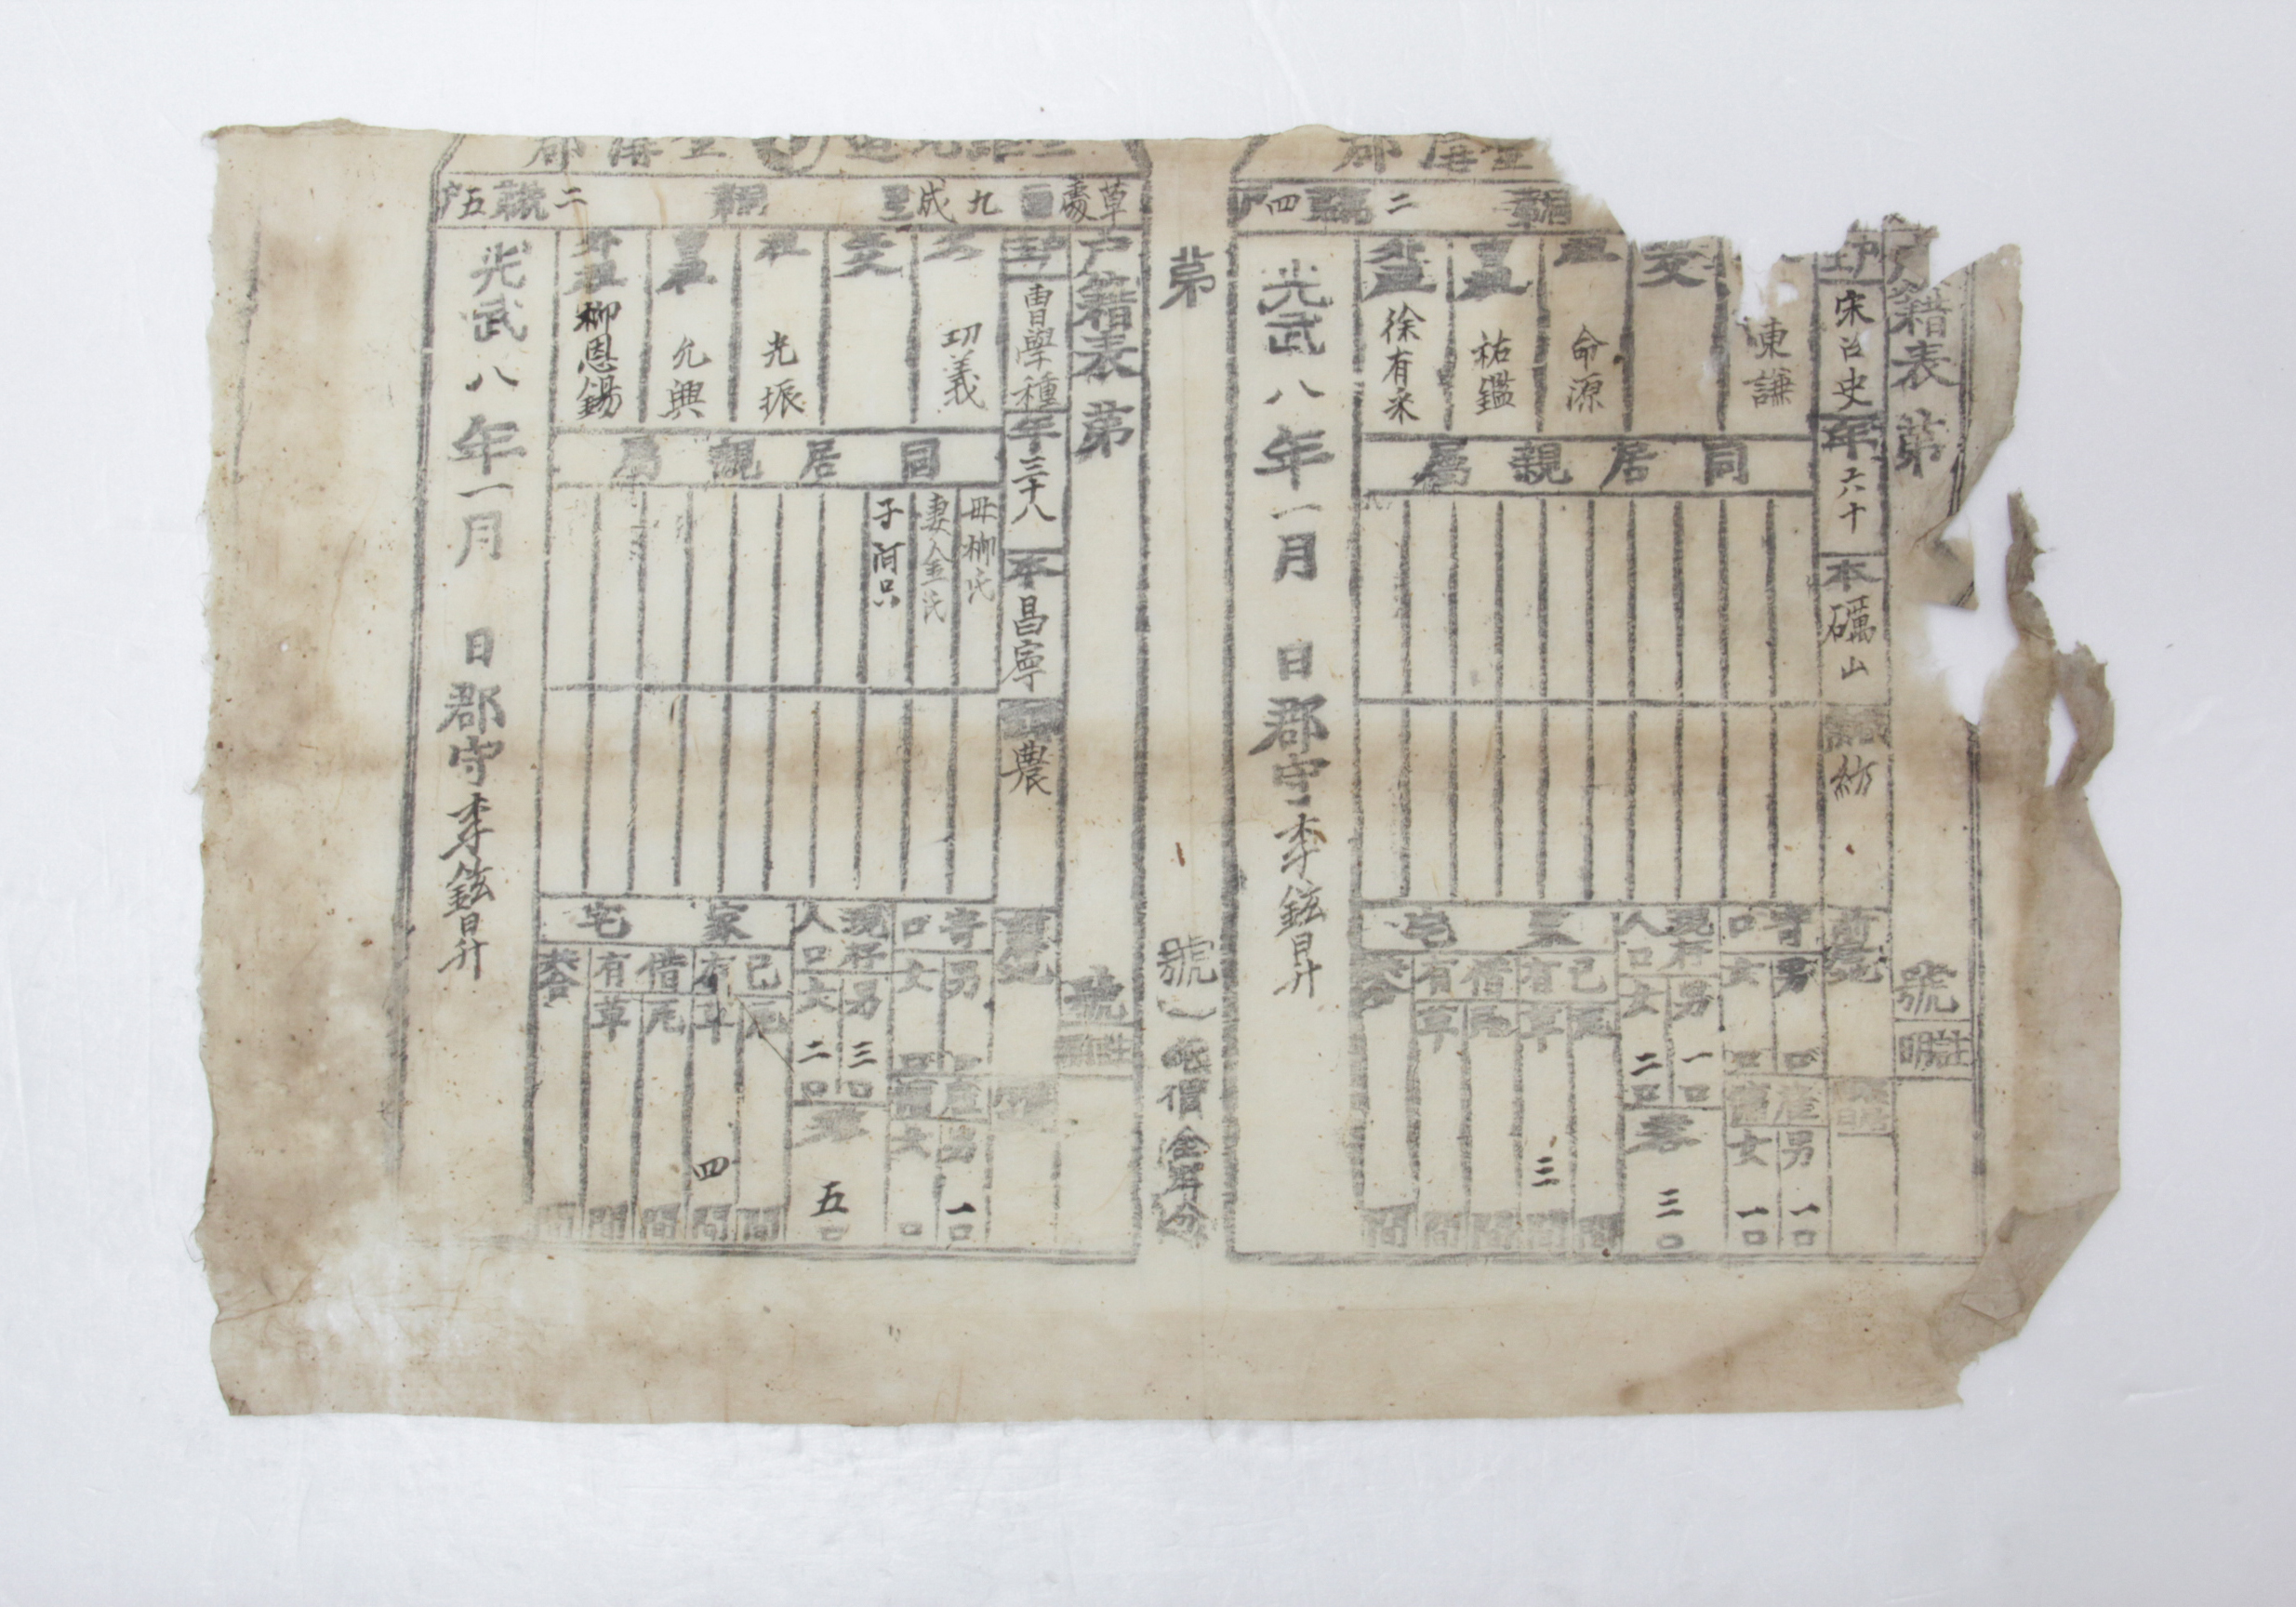 郡
四 二
戶籍表 第 號
宋召史 年 六十 本 礪山 紡 前居地
東謙
父
祖 命源
曾祖 祐鑑
外祖 徐有采
同居親屬
寄口 男 口 女 口
男 一口 女 一口
現存人口 男 一口 女 二口
共 三口
家宅
己有 瓦 間 草 三 間
借有 瓦 間 草 間
共合 間
光武八年一月 日 郡守 李鉉昇
第 號 紙價
郡
草處 九成里 二統 五戶
戶籍表 第 號
曺學種 年 三十八 本 昌寧 農 前居地
父 切義
祖 光振
曾祖 允興
外祖 柳恩錫
同居親屬
母柳氏
妻金氏
子 阿只
寄口 男 口 女 口
男 一口 女 口
現存人口 男 三口 女 二口
共 五口
家宅
己有 瓦 間 草 四 間
借有 瓦 間 草 間
共合 間
光武八年一月 日 郡守 李鉉昇